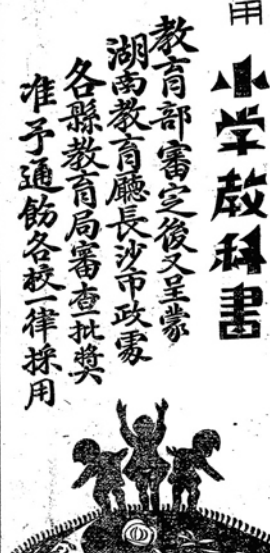 用
小学教科書
教育部審定後又呈蒙
湖南教育廳長沙市政處
各縣教育局審查批獎
准予通飭各校一律採用